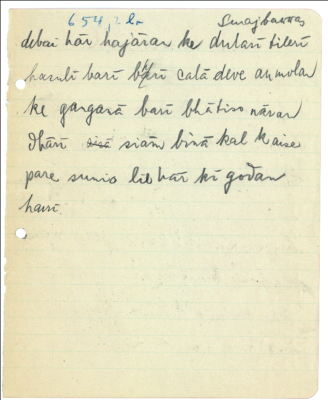 654,2 br
Surajbansas
debai hār hajāran ke dulari tileri
hasuli bari beri catā deve anmolan
ke gargana bari bhātiso nāvan
dhari siām binā kal kaise
pare sunio lil hār ki godan
hari